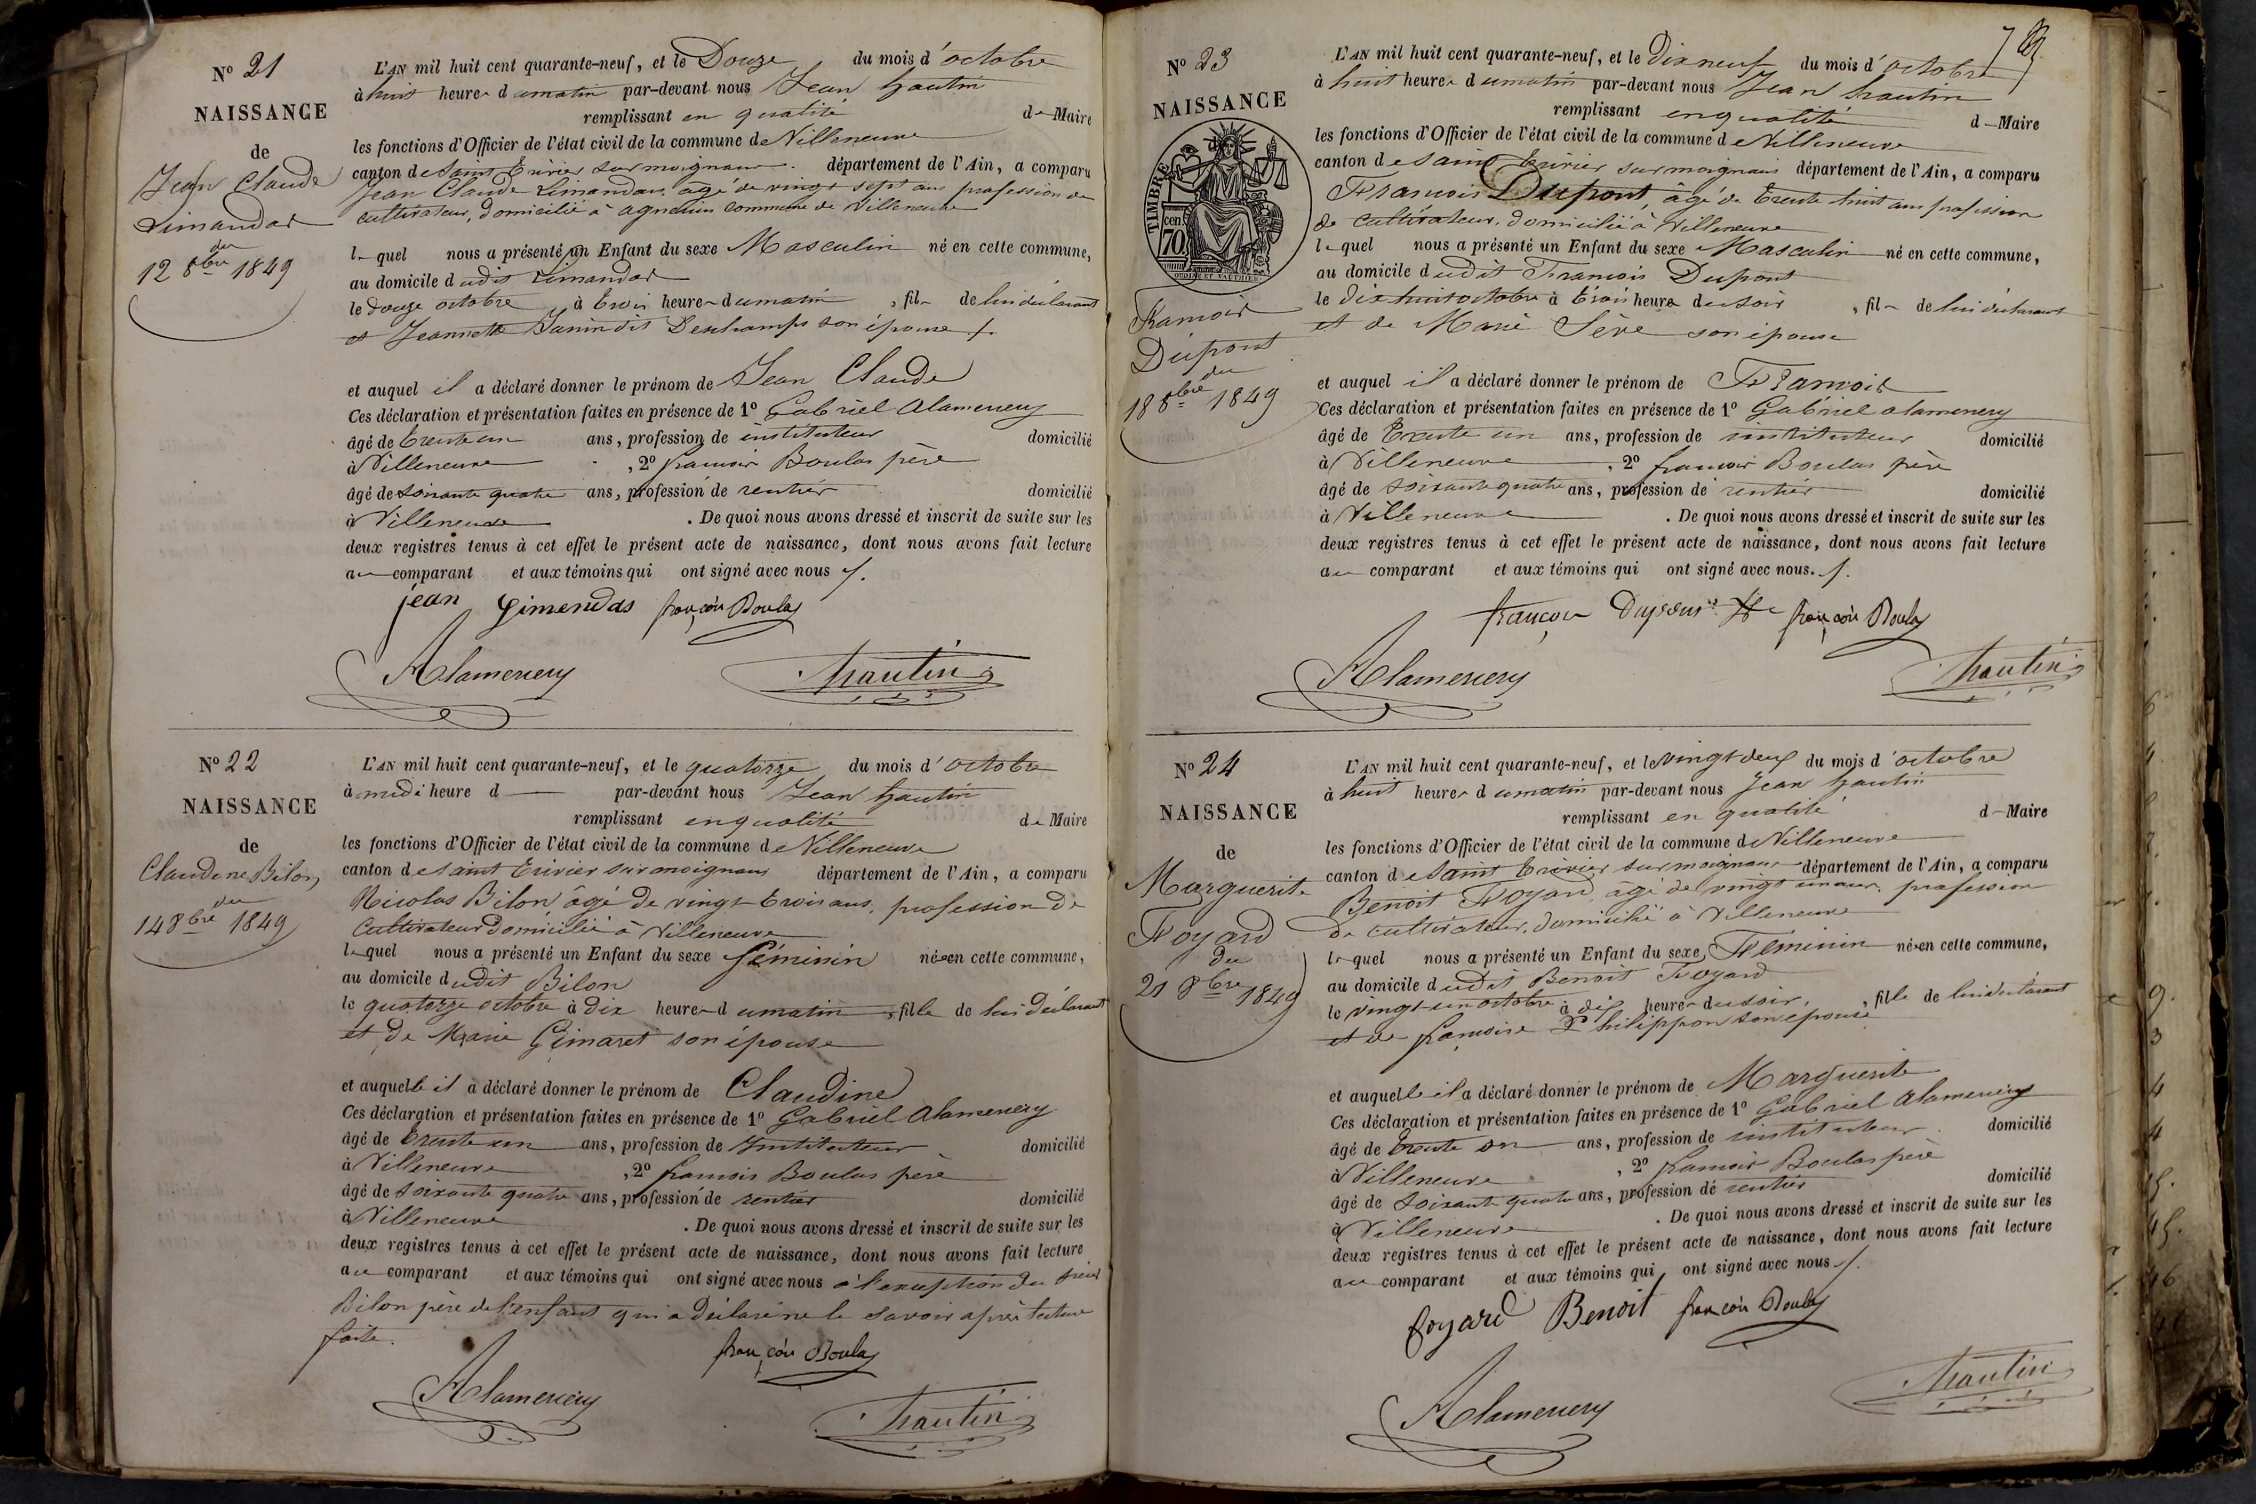 N° 21
NAISSANCE
de
Jean Claude
Limandas
du
12 8bre 1849
L'AN mil huit cent quarante-neuf, et le Douze du mois d'octobre
à huit heures du matin par-devant nous Jean hautin
remplissant en qualité de Maire
les fonctions d'Officier de l'état civil de la commune de Villeneuve
canton de Saint Trivier sur moignans département de l'Ain, a comparu
Jean Claude Limandas, agé de vingt sept ans profession de
cultivateur, domicilié à agnereins commune de Villeneuve
lequel nous a présenté un Enfant du sexe Masculin né en cette commune,
au domicile dudit Limandas
le douze octobre à trois heures du matin, fils de lui déclarant
et Jeannette Janin dit Deschamps son épouse
et auquel il a déclaré donner le prénom de Jean Claude
Ces déclaration et présentation faites en présence de 1° Gabriel Alamenery
âgé de trente un ans, profession de instituteur domicilié
à Villeneuve, 2° francois Boulas père
âgé de soixante quatre ans, profession de rentier domicilié
à Villeneuve. De quoi nous avons dressé et inscrit de suite sur les
deux registres tenus à cet effet le présent acte de naissance, dont nous avons fait lecture
au comparant et aux témoins qui ont signé avec nous
jean Gimendas françois Boulas
Alamenery hautin
N° 22
NAISSANCE
de
Claudine Bilon
du
14 8bre 1849
L'AN mil huit cent quarante-neuf, et le quatorze du mois d'octobre
à midi heure d par-devant nous Jean hautin
remplissant en qualité de Maire
les fonctions d'Officier de l'état civil de la commune de Villeneuve
canton de Saint Trivier sur moignans département de l'Ain, a comparu
Nicolas Bilon âgé de vingt trois ans, profession de
cultivateur domicilié à Villeneuve
lequel nous a présenté un Enfant du sexe féminin née en cette commune,
au domicile dudit Bilon
le quatorze octobre à dix heures du matin, fille de lui déclarant
et de Marie Gimaret son épouse
et auquelle il a déclaré donner le prénom de Claudine
Ces déclaration et présentation faites en présence de 1° Gabriel Alamenery
âgé de trente un ans, profession de Instituteur domicilié
à Villeneuve, 2° francois Boulas père
âgé de soixante quatre ans, profession de rentier domicilié
à Villeneuve. De quoi nous avons dressé et inscrit de suite sur les
deux registres tenus à cet effet le présent acte de naissance, dont nous avons fait lecture
au comparant et aux témoins qui ont signé avec nous à l'exception du
Bilon père de l'enfant qui a déclaré ne le savoir après lecture
faite.
françois Boulas
Alamenery hautin
N° 23
NAISSANCE
TIMBRE
cen
70
Francois
Dupont
du
18 8bre 1849
L'AN mil huit cent quarante-neuf, et le Dix neuf du mois d'octobre
à huit heures du matin par-devant nous Jean hautin
remplissant en qualité de Maire
les fonctions d'Officier de l'état civil de la commune de Villeneuve
canton de Saint Trivier sur moignans département de l'Ain, a comparu
Francois Dupont, âgé de trente huit ans profession
de cultivateur, domicilié à Villeneuve
lequel nous a présenté un Enfant du sexe Masculin né en cette commune,
au domicile dudit Francois Dupont
le dix huit octobre à trois heures du soir, fils de lui déclarant
et de Marie Sève son épouse
et auquel il a déclaré donner le prénom de Francois
Ces déclaration et présentation faites en présence de 1° Gabriel alamenery
âgé de trente un ans, profession de instituteur domicilié
à Villeneuve, 2° francois Boulas père
âgé de soixante quatre ans, profession de rentier domicilié
à Villeneuve. De quoi nous avons dressé et inscrit de suite sur les
deux registres tenus à cet effet le présent acte de naissance, dont nous avons fait lecture
au comparant et aux témoins qui ont signé avec nous.
françois Boulas
Alamenery hautin
N° 24
NAISSANCE
de
Marguerite
Foyard
du
21 8bre 1849
L'AN mil huit cent quarante-neuf, et le vingt deux du mois d'octobre
à huit heures du matin par-devant nous Jean hautin
remplissant en qualité de Maire
les fonctions d'Officier de l'état civil de la commune de Villeneuve
canton de Saint Trivier sur moignans département de l'Ain, a comparu
Benoit Foyard, âgé de vingt un ans, profession
de cultivateur, domicilié à Villeneuve
lequel nous a présenté un Enfant du sexe Féminin née en cette commune,
au domicile dudit Benoit Foyard
le vingt un octobre à dix heures du soir, fille de lui déclarant
et de francoise Philippon son épouse
et auquelle il a déclaré donner le prénom de Marguerite
Ces déclaration et présentation faites en présence de 1° Gabriel Alamenery
âgé de trente un ans, profession de instituteur domicilié
à Villeneuve, 2° francois Boulas père
âgé de soixante quatre ans, profession de rentier domicilié
à Villeneuve. De quoi nous avons dressé et inscrit de suite sur les
deux registres tenus à cet effet le présent acte de naissance, dont nous avons fait lecture
au comparant et aux témoins qui ont signé avec nous
foyard Benoit françois Boulas
Alamenery hautin